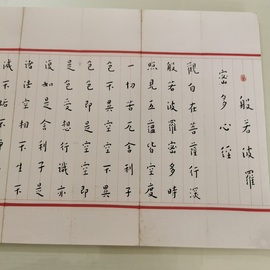 般若波羅
蜜多心經
觀自在菩薩行深
般若波羅蜜多時
照見五蘊皆空度
一切苦厄舍利子
色不異空空不異
色色即是空空即
是色受想行識亦
復如是舍利子是
諸法空相不生不
滅不垢不